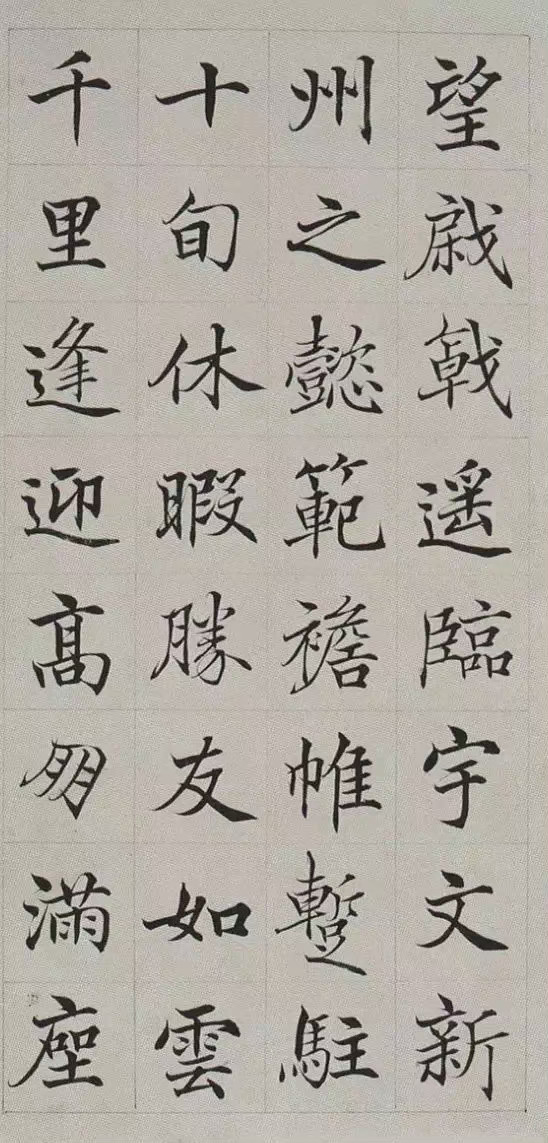 望棨戟遥臨宇文新
州之懿範襜帷蹔駐
十旬休暇勝友如雲
千里逢迎高朋滿座